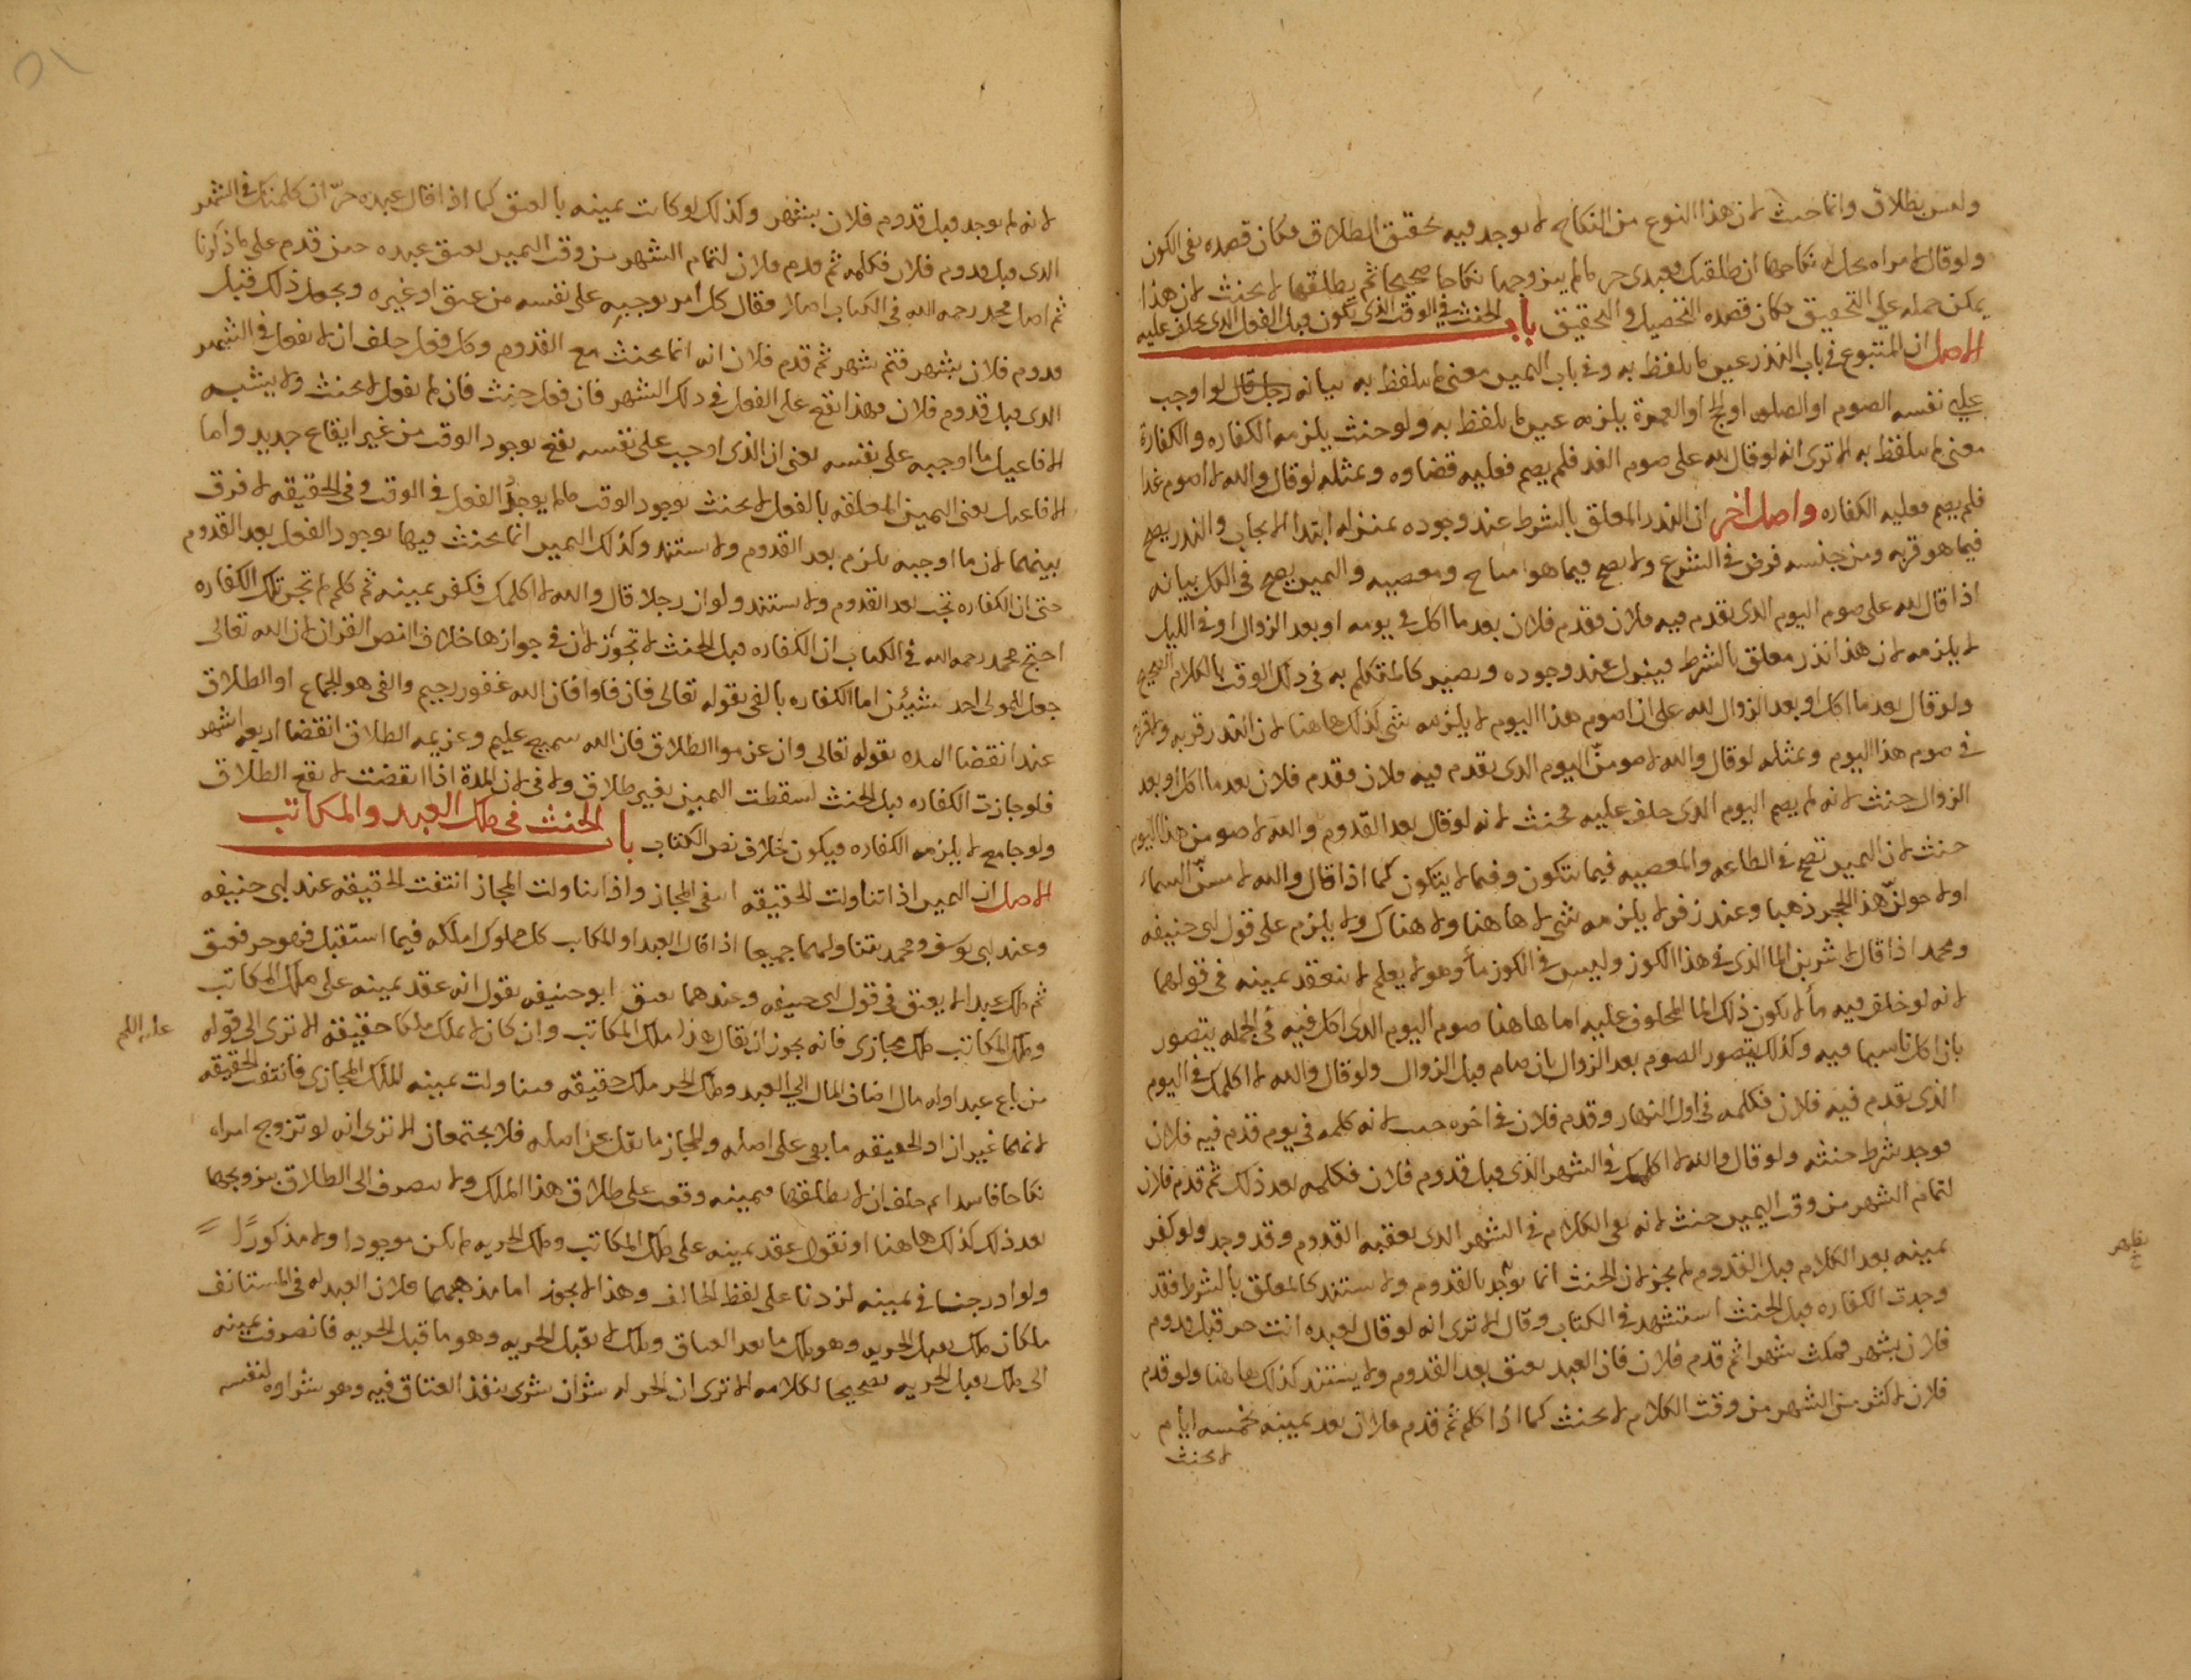 وليس بطلاق وانما حنث لان هذا النوع من النكاح لا يوجد فيه تحقيق الطلاق فكان قصده نفي الكون
ولو قال لامراه يحل له نكاحها ان طلقتك فعبدي حر فما لم يتزوجها نكاحا صحيحا ثم يطلقها لا يحنث لان هذا
يمكن حمله على التحقيق فكان قصده التحصيل والتحقيق باب الحنث في الوقت الذي يكون قبل الفعل الذي يحلف عليه
الاصل ان المتبوع في باب النذر عين ما تلفظ به وفي باب اليمين معنى ما تلفظ به بيانه رجل قال لو اوجب
عليه نفسه الصوم او الصلوه او الحج او العمرة يلزمه عين ما تلفظ به ولو حنث يلزمه الكفاره والكفارة
معنى ما تلفظ به الا ترى انه لو قال لله على صوم الغد فلم يصم فعليه قضاوه وبمثله لو قال والله لاصوم غدا
فلم يصم فعليه الكفاره واصل اخر ان النذر المعلق بالشرط عند وجوده بمنزله ابتدا الايجاب والنذر يصح
فيما هو قربه ومن جنسه فرض في الشرع ولا يصح فيما هو مباح ومعصيه واليمين يصح في الكل بيانه
اذا قال لله على صوم اليوم الذي يقدم فيه فلان فقدم فلان بعد ما اكل في يومه او بعد الزوال او في الليل
لا يلزمه لان هذا نذر معلق بالشرط فينزل عند وجوده ويصير كالمتكلم به في ذلك الوقت بالكلام الصحيح
ولو قال بعد ما اكل او بعد الزوال لله على ان اصوم هذا اليوم لا يلزمه شي كذلك هاهنا لان النذر قربه ولا قربة
في صوم هذا اليوم وبمثله لو قال والله لاصومن اليوم الذي يقدم فيه فلان فقدم فلان بعد ما اكل او بعد
الزوال حنث لانه لم يصم اليوم الذي حلف عليه فحنث لانه لو قال بعد القدوم والله لاصومن هذا اليوم
حنث لان اليمين تصح في الطاعه والمعصيه فيما يتكون وفيما لا يتكون كما اذا قال والله لامسن السماء
او لاحولن هذا الحجر ذهبا وعند زفر لا يلزمه شي لا هاهنا ولا هناك ولا يلزم على قول ابي حنيفه
ومحمد اذا قال لاشربن الما الذي في هذا الكوز وليس في الكوز مأ وهو لا يعلم لا تنعقد يمينه في قولهما
لانه لو خلق فيه مأ لا يكون ذلك الما المحلوف عليه اما هاهنا صوم اليوم الذي اكل فيه في الجمله يتصور
بان اكل ناسيا فيه وكذلك يتصور الصوم بعد الزوال بان صام قبل الزوال ولو قال والله لا اكلمك في اليوم
الذي يقدم فيه فلان فكلمه في اول النهار وقدم فلان في اخره حنث لانه كلمه في يوم قدم فيه فلان
فوجد شرط حنثه ولو قال والله لا اكلمك في الشهر الذي قبل قدوم فلان فكلمه بعد ذلك ثم قدم فلان
لتمام الشهر من وقت اليمين حنث لانه نفى الكلام في الشهر الذي يعقبه القدوم وقد وجد ولو كفر
يمينه بعد الكلام قبل القدوم لم يجز لان الحنث انما يوجد بالقدوم ولا يستند كالمعلق بالشرط فقد
وجدت الكفاره قبل الحنث استشهد في الكتاب وقال الا ترى انه لو قال لعبده انت حر قبل قدوم
فلان بشهر فمكث شهرا ثم قدم فلان فان العبد يعتق بعد القدوم ولا يستند كذلك هاهنا ولو قدم
فلان لاكثر من الشهر من وقت الكلام لا يحنث كما اذا كلم ثم قدم فلان بعد يمينه بخمسه ايام
لا يحنث
لانه لم يوجد قبل قدوم فلان بشهر وكذلك لو كانت يمينه بالعتق كما اذا قال عبده حر ان كلمتك في الشهر
الذي قبل قدوم فلان فكلمه ثم قدم فلان لتمام الشهر من وقت اليمين يعتق عبده حين قدم على ما ذكرنا
ثم اصل محمد رحمه الله في الكتاب اصلا فقال كل امر يوجبه على نفسه من عتق او غيره ويجعل ذلك قبل
قدوم فلان بشهر فتم شهر ثم قدم فلان انه انما يحنث مع القدوم وكل فعل حلف ان لا يفعل في الشهر
الذي قبل قدوم فلان فهذا يقع على الفعل في ذلك الشهر فان فعل حنث فان لم يفعل لا يحنث ولا يشبه
الافاعيل ما اوجبه على نفسه يعني ان الذي اوجب على نفسه يقع بوجود الوقت من غير ايقاع جديد واما
الافاعيل يعني اليمين المعلقه بالفعل لا يحنث بوجود الوقت ما لم يوجد الفعل في الوقت وفي الحقيقه لا فرق
بينهما لان ما اوجبه يلزم بعد القدوم ولا يستند وكذلك اليمين انما يحنث فيها بوجود الفعل بعد القدوم
حتى ان الكفاره تجب بعد القدوم ولا يستند ولو ان رجلا قال والله لا اكلمك فكفر يمينه ثم كلم لم تجز تلك الكفاره
احتج محمد رحمه الله في الكتاب ان الكفاره قبل الحنث لا تجوز لان في جوازها خلاف النص القران لان الله تعالى
جعل للمولى احد شيئين اما الكفاره بالفي بقوله تعالى فان فاوا فان الله غفور رحيم والفي هو الجماع او الطلاق
عند انقضا المده بقوله تعالى وان عزموا الطلاق فان الله سميع عليم وعزيمه الطلاق انقضا اربعه اشهر
فلو جازت الكفاره قبل الحنث لسقطت اليمين بغير طلاق ولا في لان المدة اذا انقضت لا يقع الطلاق
ولو جامع لا يلزمه الكفاره فيكون خلاف نص الكتاب باب الحنث في ملك العبد والمكاتب
الاصل ان اليمين اذا تناولت الحقيقه انتفى المجاز واذا تناولت المجاز انتفت الحقيقه عند ابي حنيفه
وعند ابي يوسف ومحمد يتناولهما جميعا اذا قال العبد او المكاتب كل مملوك املكه فيما استقبل فهو حر فعتق
ثم ملك عبدا لا يعتق في قول ابي حنيفه وعندهما يعتق ابو حنيفه يقول انه عقد يمينه على ملك المكاتب
وملك المكاتب ملك مجازي فانه يجوز ان يقال هذا ملك المكاتب وان كان لا يملك ملكا حقيقة الا ترى الى قوله
من باع عبدا وله مال اضاف المال الى العبد وملك الحر ملك حقيقه فتناولت يمينه الملك المجازي فانتفت الحقيقه
لانهما غيران اذ الحقيقه ما بقي على اصله والمجاز ما نقل عن اصله فلا يجتمعان الا ترى انه لو تزوج امراه
نكاحا فاسدا ثم حلف ان لا يطلقها فيمينه وقعت على طلاق هذا الملك ولا يصرف الى الطلاق بتزويجها
بعد ذلك كذلك هاهنا او نقول عقد يمينه على ملك المكاتب وملك الحريه لم يكن موجودا ولا مذكورا
ولو ادرجنا في يمينه لزدنا على لفظ الحالف وهذا لا يجوز اما مذهبهما فلان العبد له في المستانف
ملكان ملك يقبل الحريه وهو ملك ما بعد العتاق وملك لا يقبل الحريه وهو ما قبل الحريه فانصرفت يمينه
الى ملك يقبل الحريه تصحيحا لكلامه الا ترى ان الحر له شراان شرى ينفذ العتاق فيه وهو شراوه لنفسه
عليه السلم